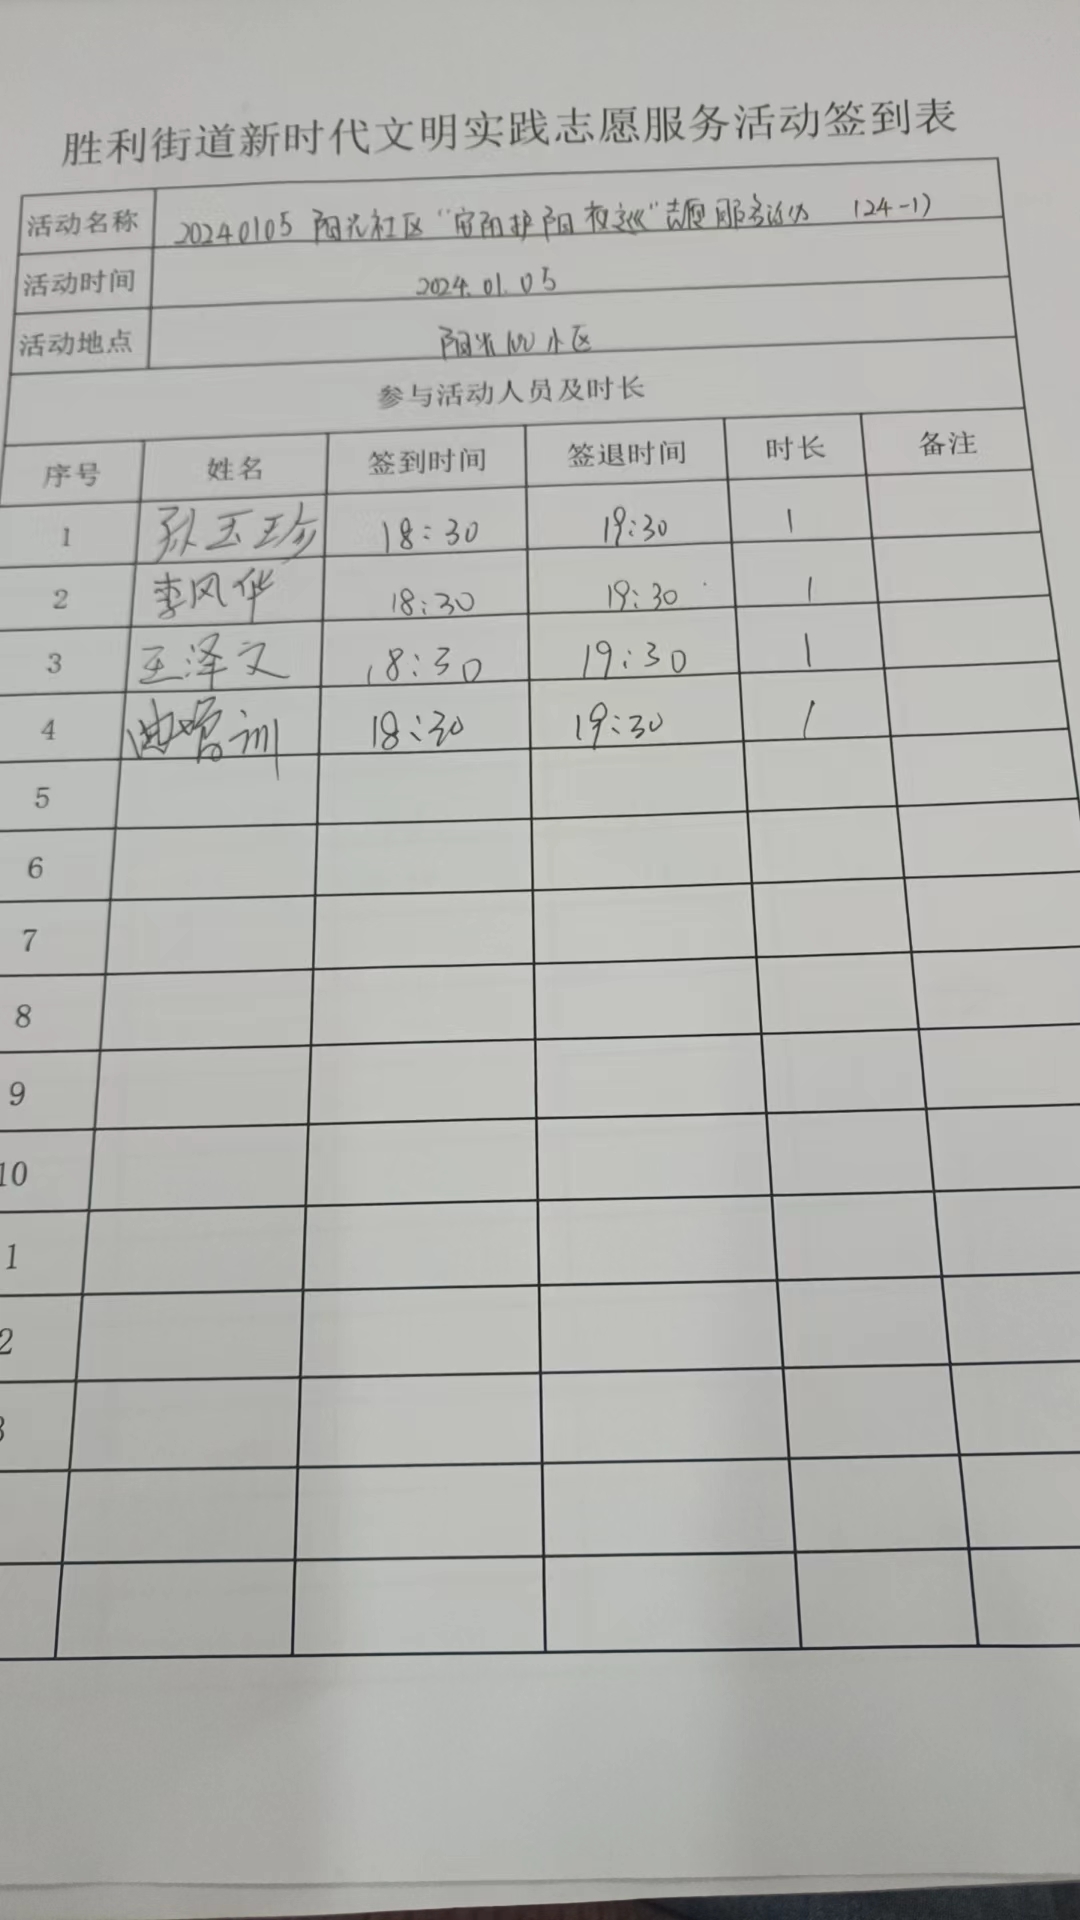 胜利街道新时代文明实践志愿服务活动签到表
活动名称 20240105 阳光社区"守阳护阳夜巡"志愿服务活动 (24-1)
活动时间 2024.01.05
活动地点 阳光100小区
参与活动人员及时长
序号 姓名 签到时间 签退时间 时长 备注
1 孙玉珍 18:30 19:30 1
2 李风华 18:30 19:30 1
3 王泽文 18:30 19:30 1
4 曲 训 18:30 19:30 1
5
6
7
8
9
10
1
2
3